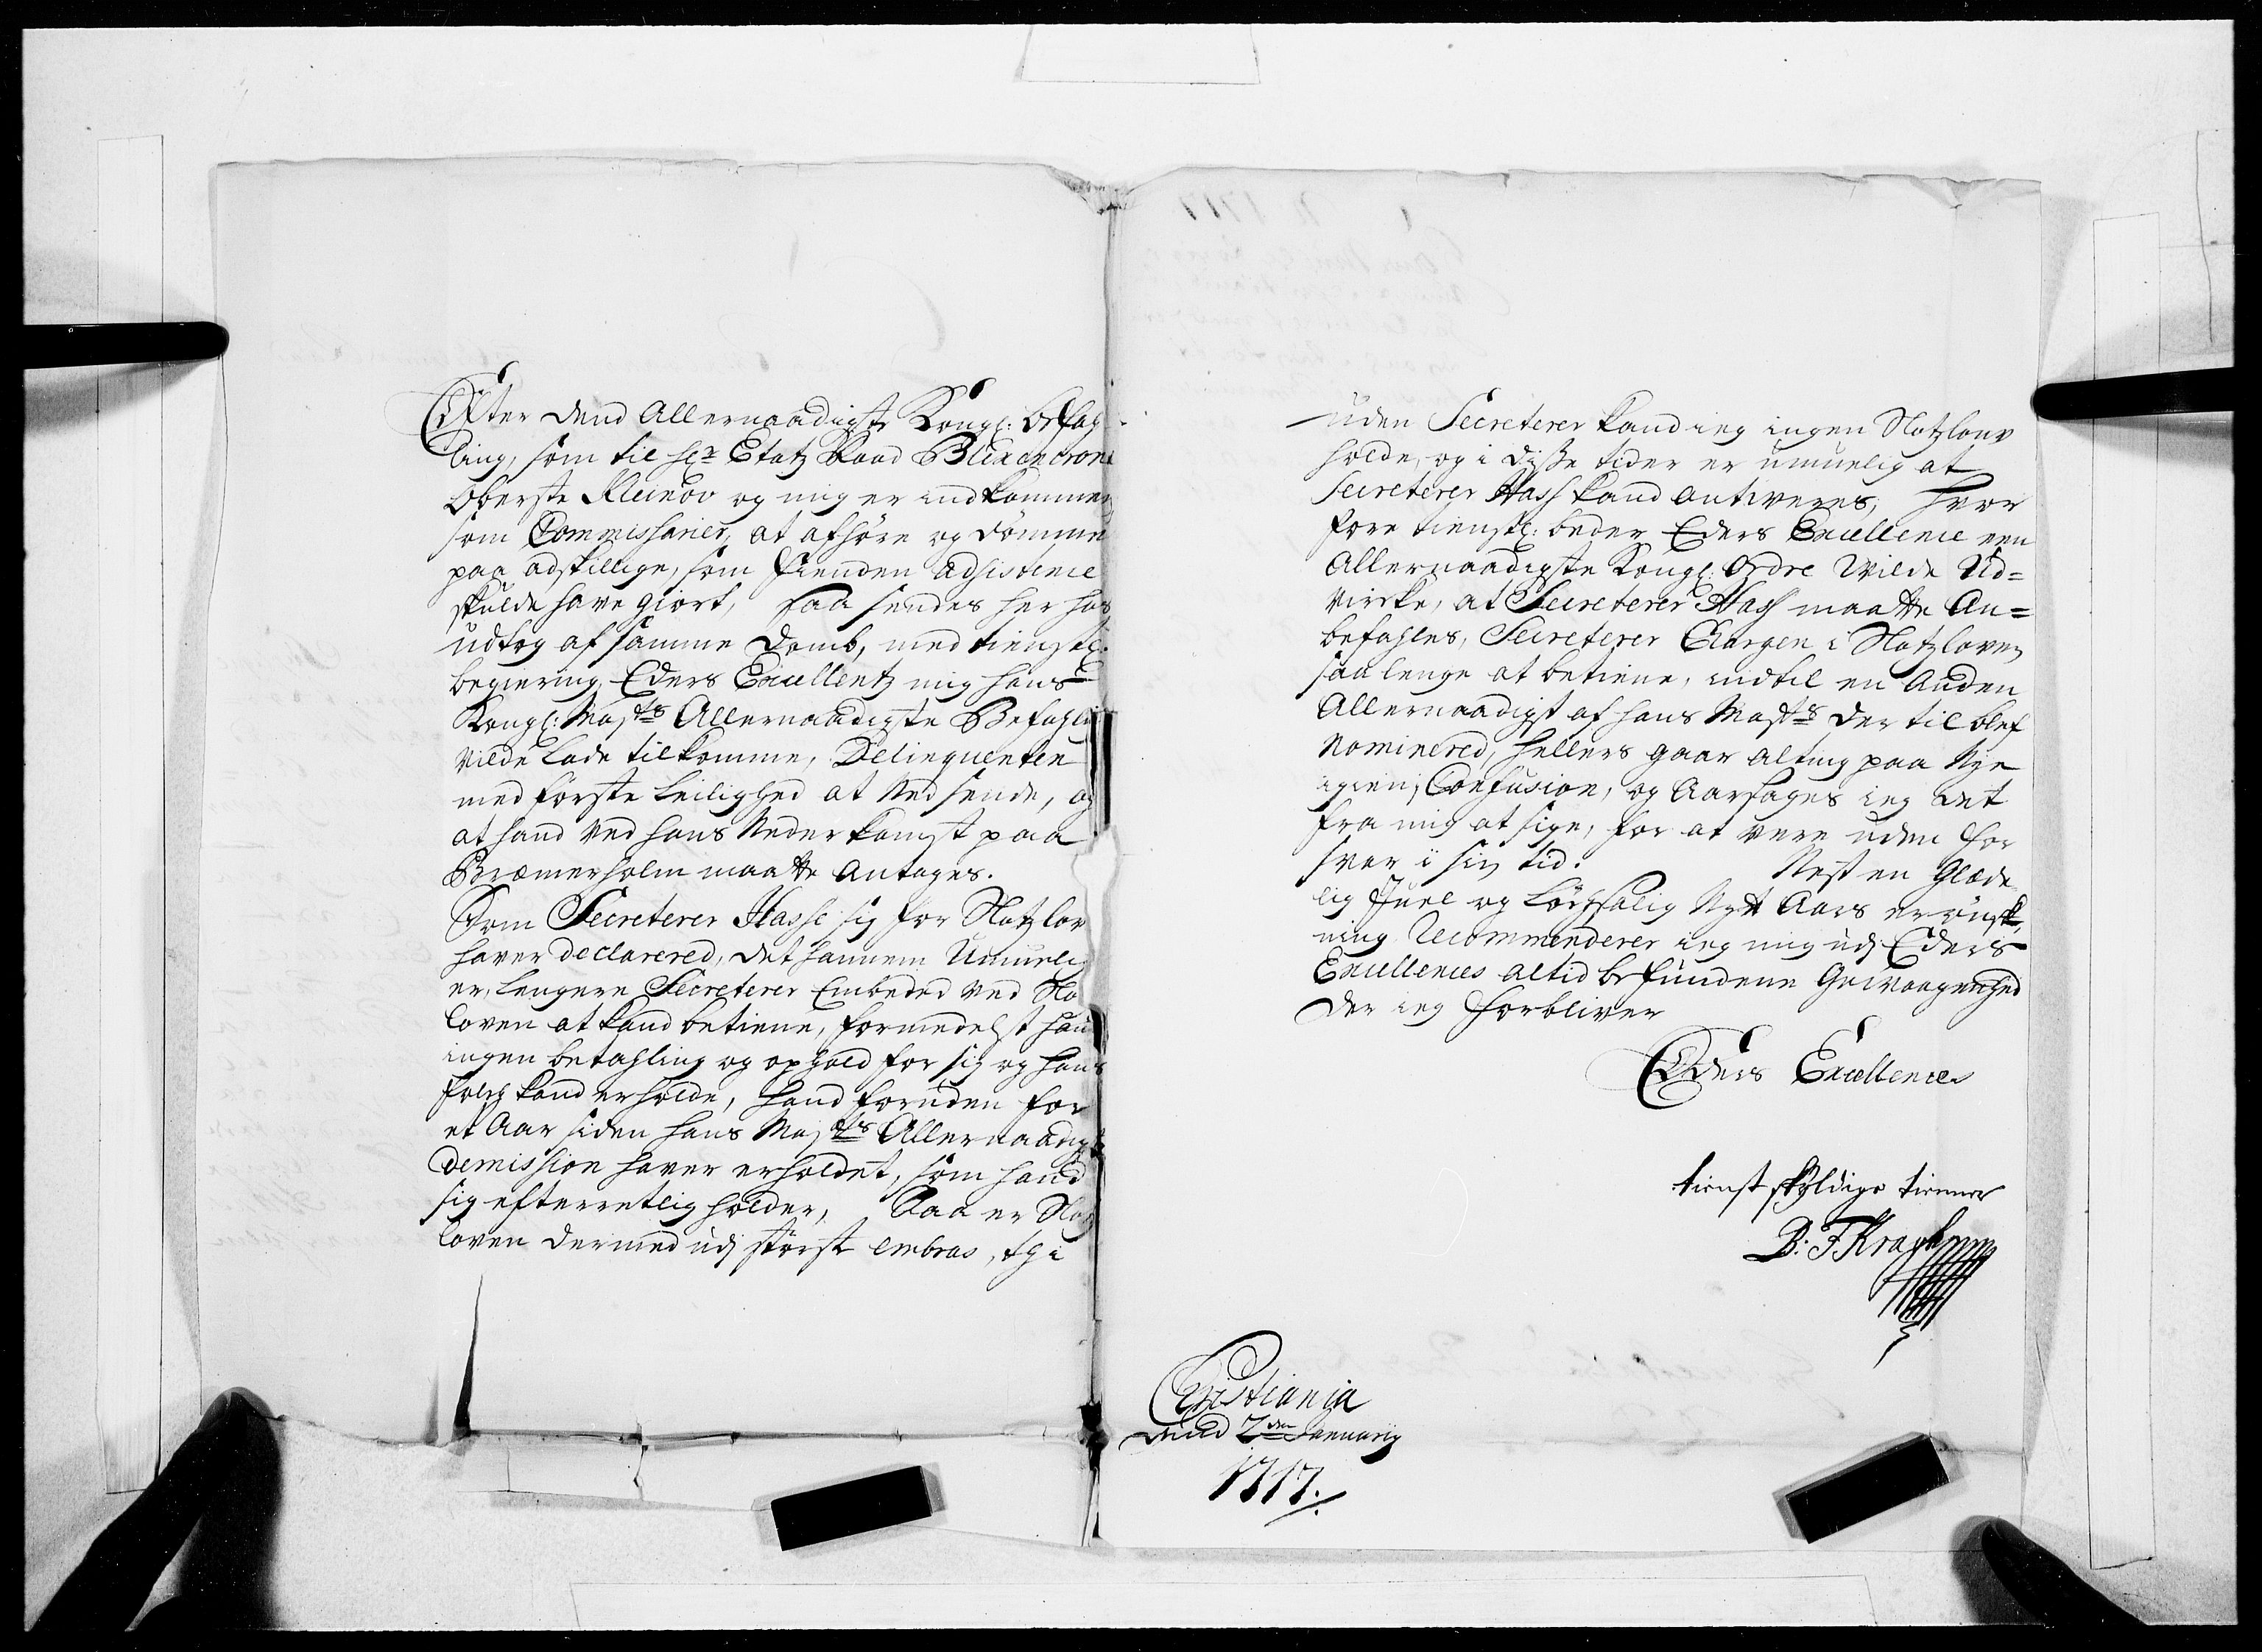 Efter dend Allernaadigste Kongl: befah
ling, som til hr Etatz Raad Blixencrone
Oberste Kleinov og mig er indkommen
som Commissarier, at afhøre og dømme
paa adskillige, som fienden Adsistence
skulde have giort, saa sendes her hos
udtog af samme Domb, med tienstl:
begiering Eders Excellentz mig hans
Kongl: Maÿts Allernaadigste Befahli
vilde lade tilkomme, Delinquenten
med første leilighed at Ned sende, og
at hand ved hans Nederkomst paa
Bræmerholm maatte Antages.
Som Secreterer Hasse sig for Slotzlov
haver declarered, det hannem Umuelig
er, lengere Secreterer Embeded ved Slo
loven at kand betiene, formedelst hand
ingen betahling og ophold for sig og hans
folch kand erholde, hand foruden for
et Aar siden hans Mayts Allernaadigste
demission haver erholdet, som hand
sig efterretlig holder, Saa er Slotz
loven dermed udj største embras, thi
uden Secreterer kand ieg ingen Slotzlouv
holde, og i disse tider er umuelig at
Secreterer Hass kand entveres, hvor
fore tienstl: beder Eders Excellence een
Allernaadigste Kongl: Ordre vilde Ud=
virke, at Secreterer Hass maatte An=
befahles, Secreterer Chargen i Slotzloven
saa lenge at betiene, indtil en Anden
Allernaadigst af hans Mayts der til blef
nominered, hellers gaar alting paa Nye
igien j Confusion, og Aarsages ieg det
fra mig at sige, for at vere uden for
svar i sin tid. Nest en Glæde
lig Juel og Løchsalig Nytt Aars erønsk
ning Recommenderer ieg mig udj Eders
Excellences altid befundene Gevaagenhed
der ieg forbliver
Eders Excellences
tienst skyldige tienner
B: F Kragh
Christiania
dend 2den Januarij
1717.